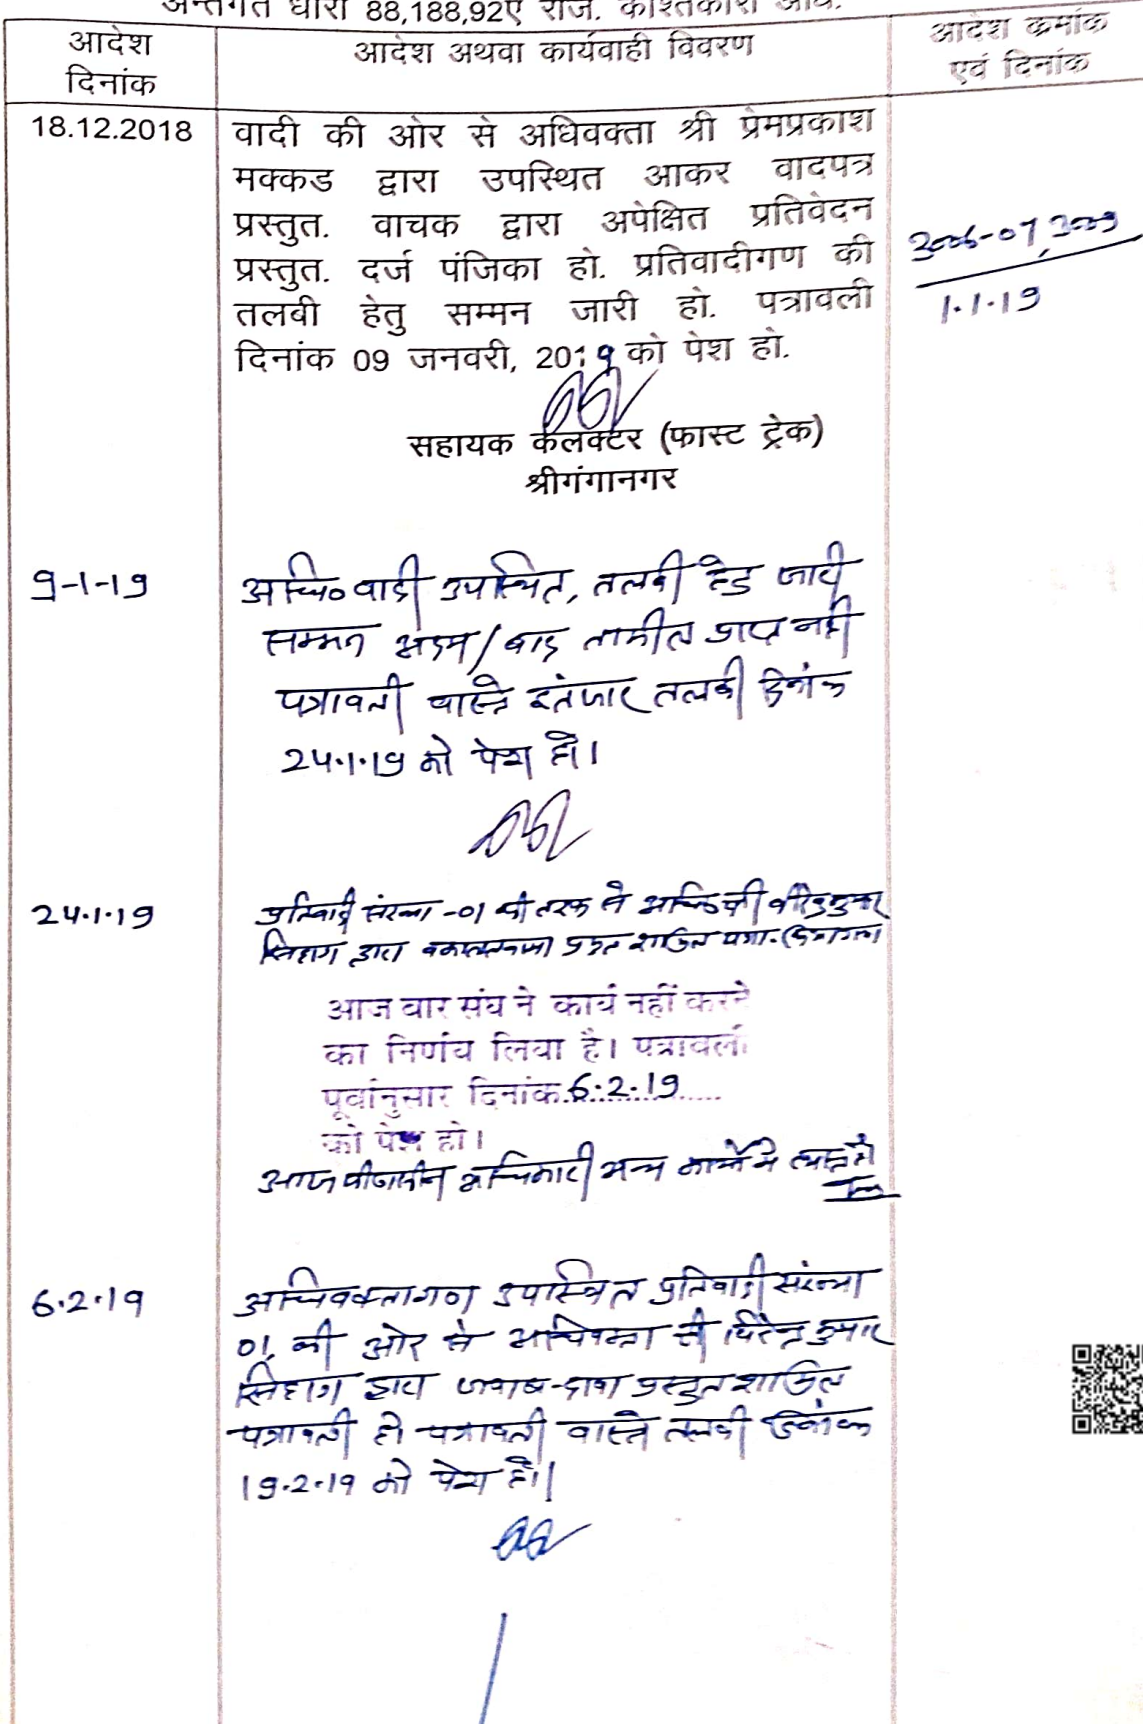 अन्तर्गत धारा 88,188,92ए राज. काश्तकारी अधि.
आदेश दिनांक
आदेश अथवा कार्यवाही विवरण
आदेश क्रमांक एवं दिनांक
18.12.2018
वादी की ओर से अधिवक्ता श्री प्रेमप्रकाश
मक्कड द्वारा उपस्थित आकर वादपत्र
प्रस्तुत. वाचक द्वारा अपेक्षित प्रतिवेदन
प्रस्तुत. दर्ज पंजिका हो. प्रतिवादीगण की
तलबी हेतु सम्मन जारी हो. पत्रावली
दिनांक 09 जनवरी, 2019 को पेश हो.
1.1.19
सहायक कलक्टर (फास्ट ट्रेक)
श्रीगंगानगर
9-1-19
अधि० वादी उपस्थित, तलबी हेतु जारी
सम्मन अदम/बाद तामील प्राप्त नहीं
पत्रावली वास्ते इंतजार तलबी दिनांक
24.1.19 को पेश हो।
24.1.19
प्रतिवादी संख्या -01 की तरफ से अधि० श्री कुमार
सिहाग द्वारा वकालतनामा शामिल
आज बार संघ ने कार्य नहीं करने
का निर्णय लिया है। पत्रावली
पूर्वानुसार दिनांक 6.2.19
को पेश हो।
आज पीठासीन अधिकारी अन्य कार्य में व्यस्त है
6.2.19
अधिवक्तागण उपस्थित प्रतिवादी संख्या
01 की ओर से अधिवक्ता श्री विरेन्द्र कुमार
सिहाग द्वारा जवाब-दावा प्रस्तुत शामिल
पत्रावली हो पत्रावली वास्ते तलबी दिनांक
19.2.19 को पेश हो।